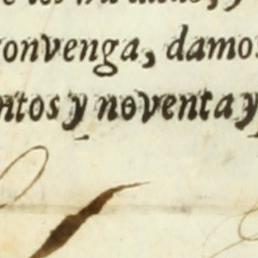 onvenga, damos
ntos y noventa y